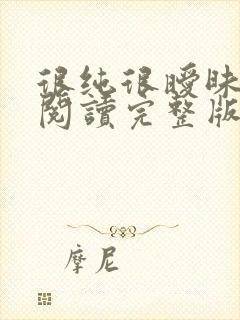 很純很曖昧
閱讀完整版
摩尼